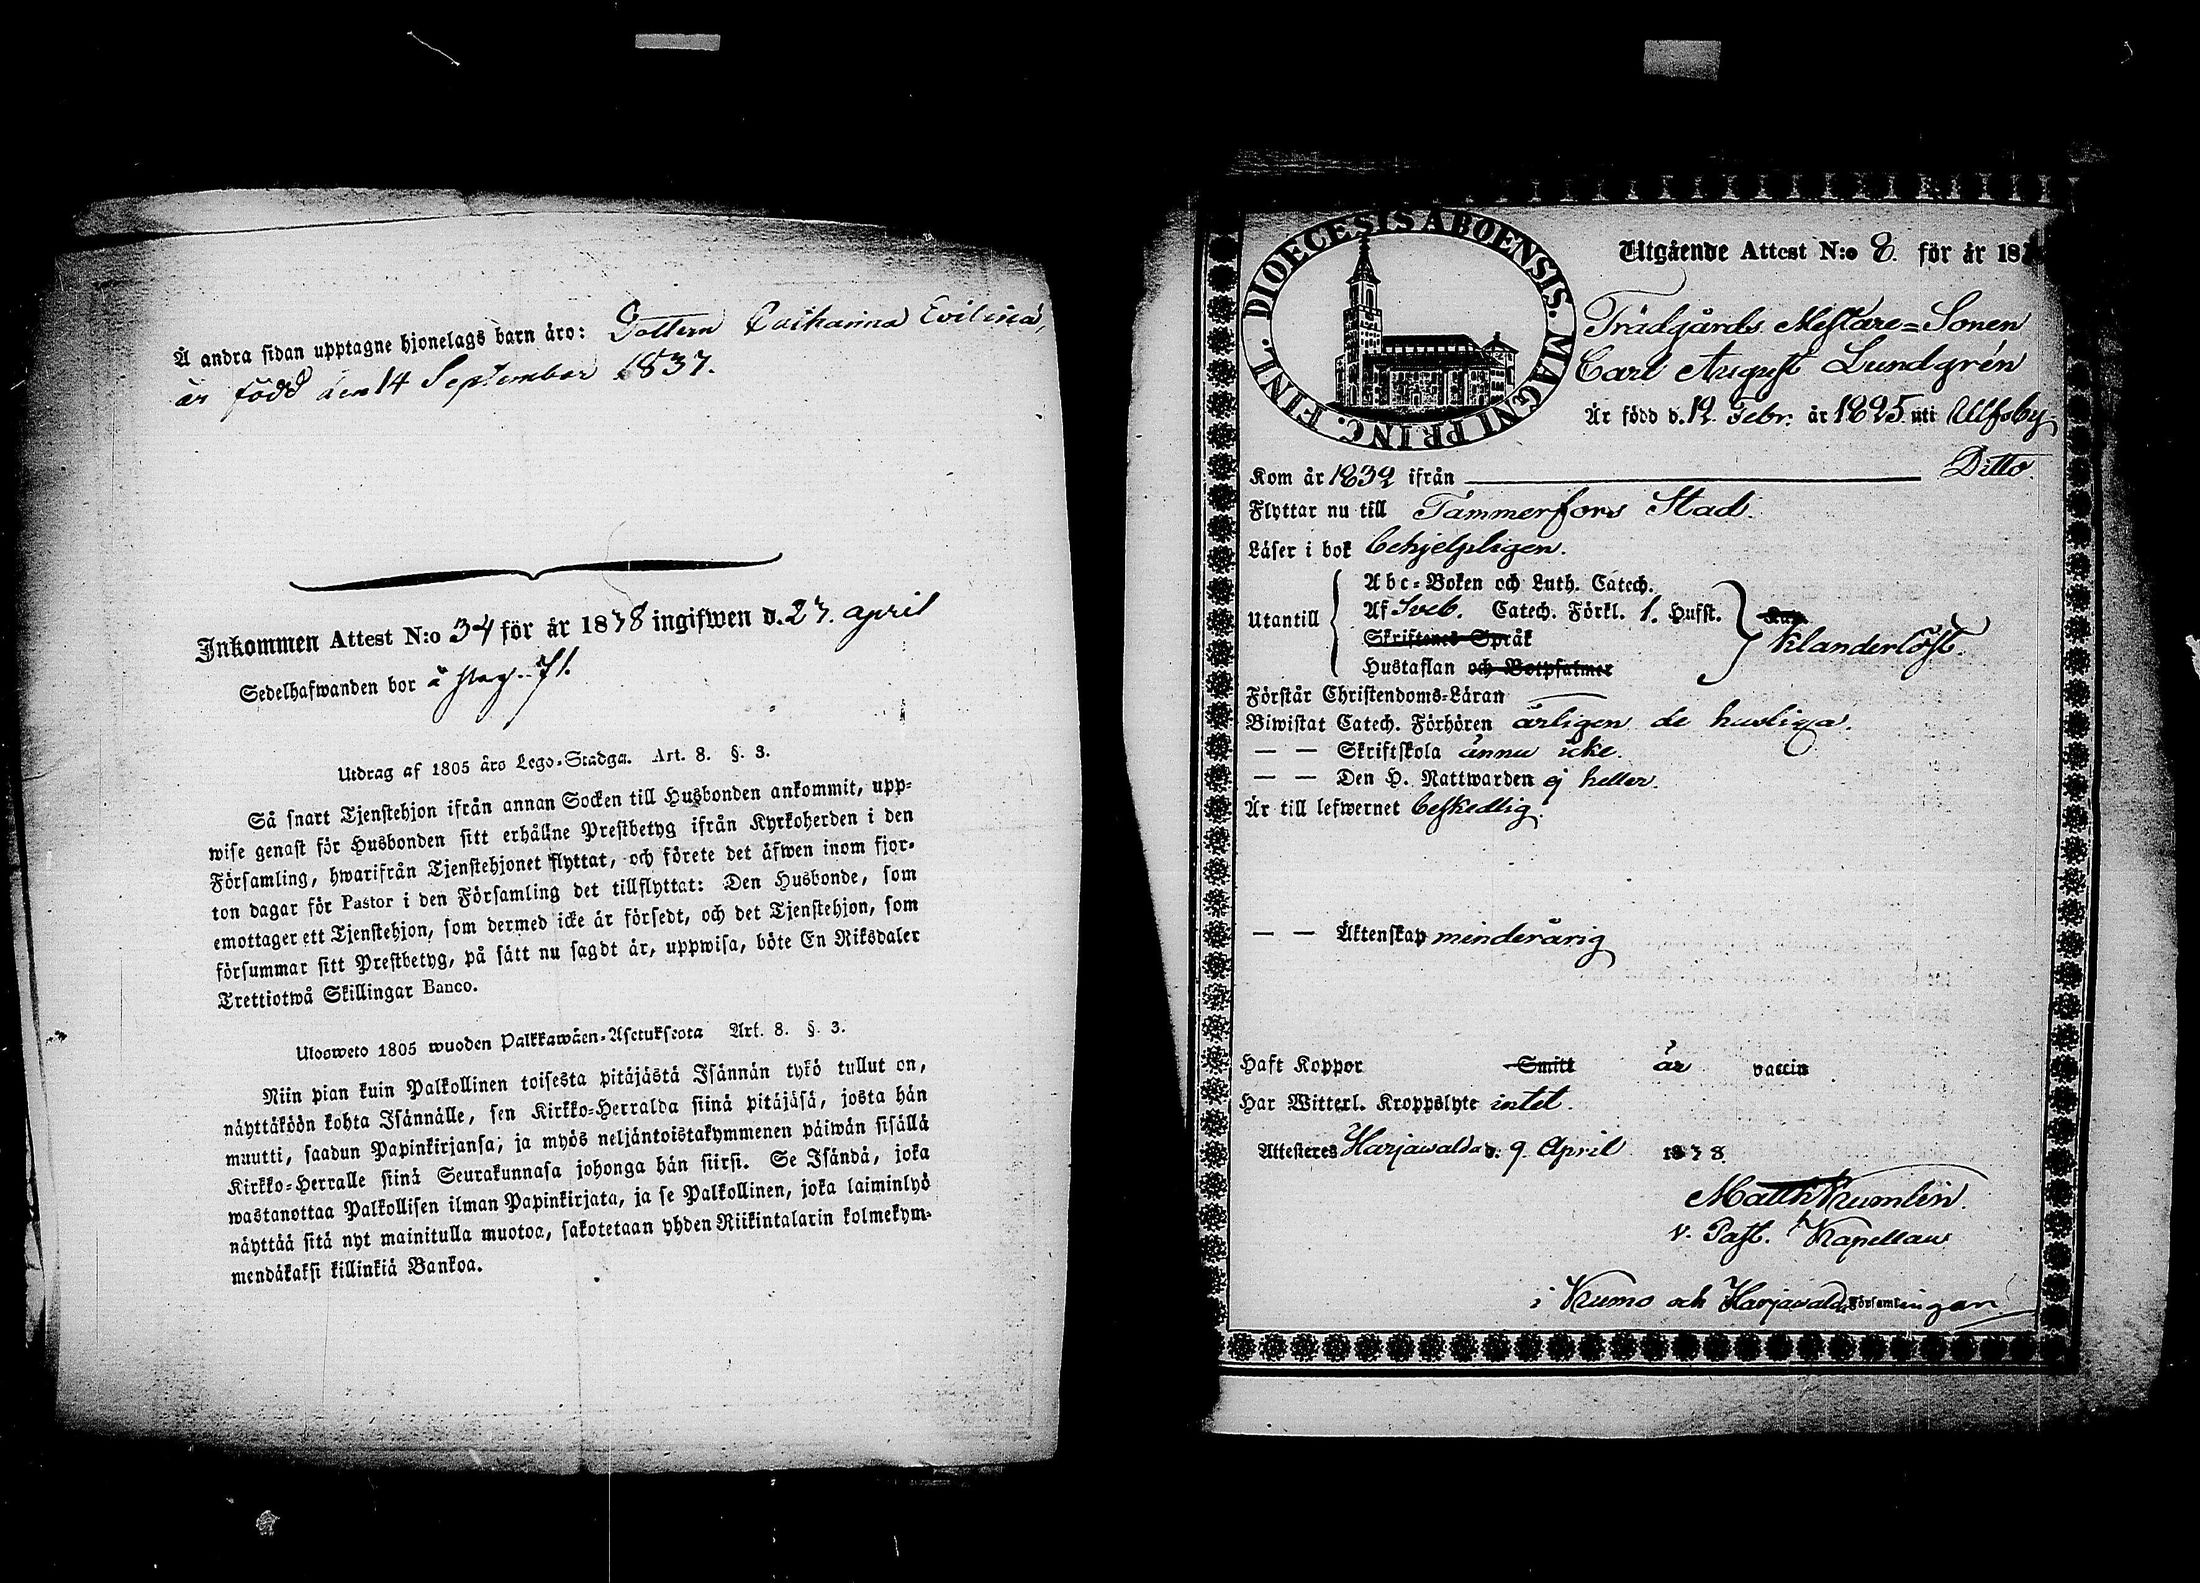 Å andra sidan upptagne hjonelags barn äro: Dottern Catharina Evilina,
är född den 14 September 1837.
Inkommen Attest N:o 34 för år 1838 ingifwen d. 27. april
Sedelhafwanden bor å
Utdrag af 1805 års Lego-Stadga. Art. 8. §. 3.
Så snart Tjenstehjon ifrån annan Socken till Husbonden ankommit, upp-
wise genast för Husbonden sitt erhållne Prestbetyg ifrån Kyrkoherden i den
Församling, hwarifrån Tjenstehjonet flyttat, och förete det äfwen inom fjor-
ton dagar för Pastor i den Församling det tillflyttat: Den Husbonde, som
emottager ett Tjenstehjon, som dermed icke är försedt, och det Tjenstehjon, som
försummar sitt Prestbetyg, på sätt nu sagdt är, uppwisa, böte En Riksdaler
Trettiotwå Skillingar Banco.
Ulosweto 1805 wuoden Palkkawäen-Asetuksesta Art. 8. §. 3.
Niin pian kuin Palkollinen toisesta pitäjästä Isännän tykö tullut on,
näyttäköön kohta Isännälle, sen Kirkko-Herralda siinä pitäjäsä, josta hän
muutti, saadun Papinkirjansa, ja myös neljäntoistakymmenen päiwän sisällä
Kirkko-Herralle siinä Seurakunnasa johonga hän siirsi. Se Isändä, joka
wastanottaa Palkollisen ilman Papinkirjata, ja se Palkollinen, joka laiminlyö
näyttää sitä nyt mainitulla muotoa, sakotetaan yhden Riikintalarin kolmekym-
mendäkaksi killinkiä Bankoa.
DIOECESIS ABOENSIS. MAGNI PRINC. FINL.
Utgående Attest N:o 8. för år 18
Trädgårds Mestare=Sonen
Carl August Lundgrén
Är född d. 12 Febr. år 1825 uti Ulfsby
Kom år 1832 ifrån Ditto.
Flyttar nu till Tammerfors Stad.
Läser i bok behjelpligen.
Utantill
Abc-Boken och Luth. Catech.
Af Sveb. Catech. Förkl. 1. Hufst.
Skriftenes Språk
Hustaflan och Botpsalmer
klanderlöst.
Förstår Christendoms-Läran
Biwistat Catech. Förhören årligen de husliga.
— — Skriftskola ännu icke.
— — Den H. Nattwarden ej heller.
Är till lefwernet beskedlig.
— — Äktenskap minderårig
Haft Koppor Smitt är vaccin
Har Witterl. Kroppslyte intet.
Attesteres Harjawalda d. 9 April 1838.
Matth Krumlin.
v. Past. Kapellan
i Kumo och Harjawalda Församlingar